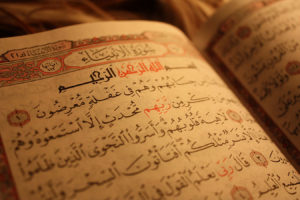 سُورَةُ الْأَنْبِيَاءِ
اللَّهِ الرَّحْمَٰنِ الرَّحِيمِ
حِسَابُهُمْ وَهُمْ فِي غَفْلَةٍ مُعْرِضُونَ
ذِكْرٍ مِنْ رَبِّهِمْ مُحْدَثٍ إِلَّا اسْتَمَعُوهُ وَهُمْ
لَاهِيَةً قُلُوبُهُمْ وَأَسَرُّوا النَّجْوَى الَّذِينَ ظَلَمُوا
مِثْلُكُمْ أَفَتَأْتُونَ السِّحْرَ
قَالَ رَبِّي يَعْلَمُ الْقَوْلَ فِي